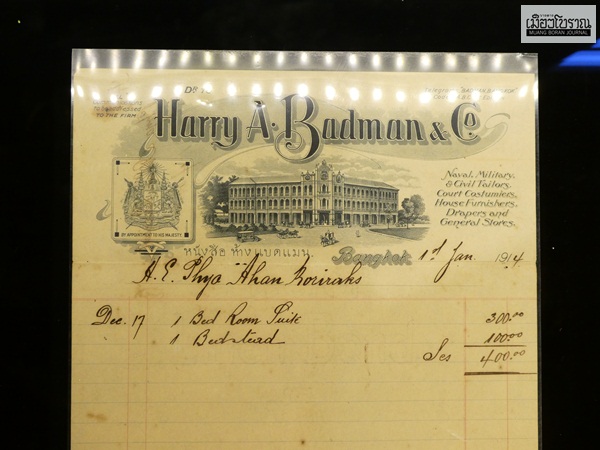 วารสาร
เมืองโบราณ
MUANG BORAN JOURNAL
Dr. to
TO THE FIRM
Harry A. Badman & Co
Naval, Military,
& Civil Tailors,
Court Costumiers,
House Furnishers,
Drapers and
General Stores.
BY APPOINTMENT TO HIS MAJESTY
หนังสือ ห้างแบดแมน
Bangkok 1st Jan 1914
H. E. Phya Ahan Boriraks
Dec. 17 1 Bed Room Suite 300.00
1 Bedstead 100.00
Tcs 400.00